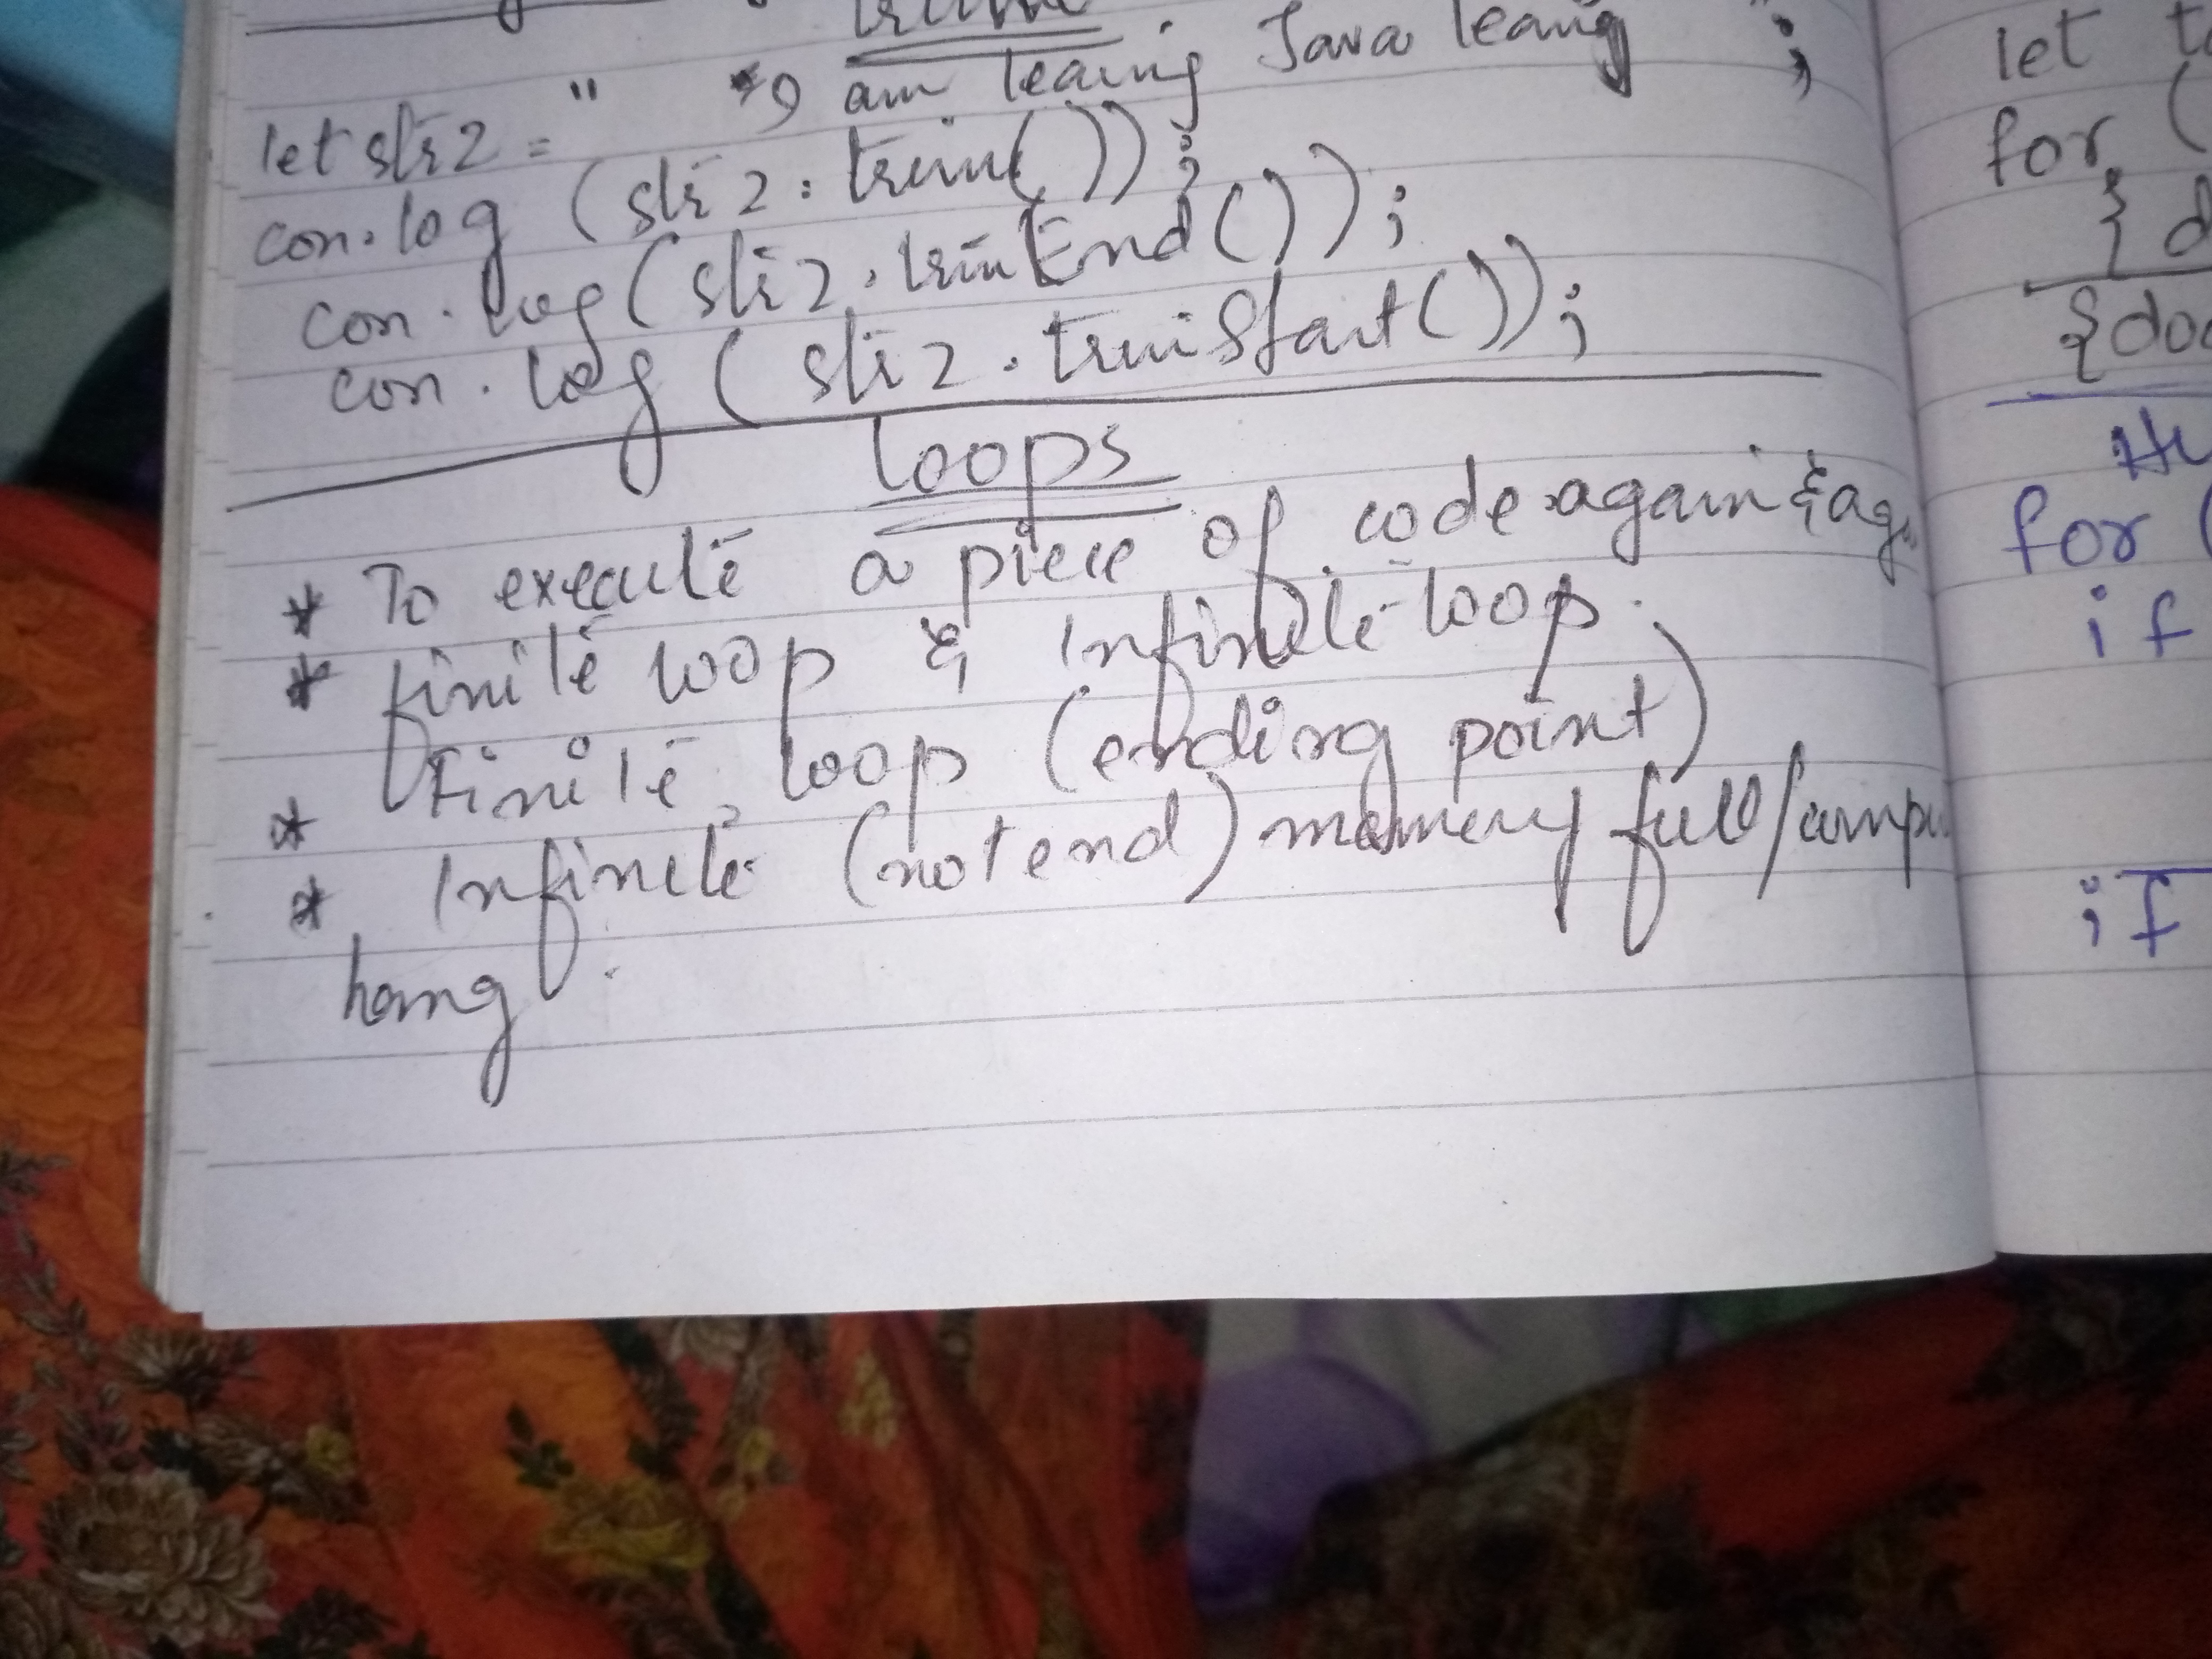 let str2 = "     I am leaing Java leaing     ";
con.log (str2.trim());
con.log (str2.trimEnd());
con.log (str2.trimStart());
loops
* To execute a piece of code again & ag
* finite loop & Infinite loop.
* Finite loop (ending point)
* Infinite (not end) memery full/compu
hang.
let t
for (
} d
{doc
for (
if
if